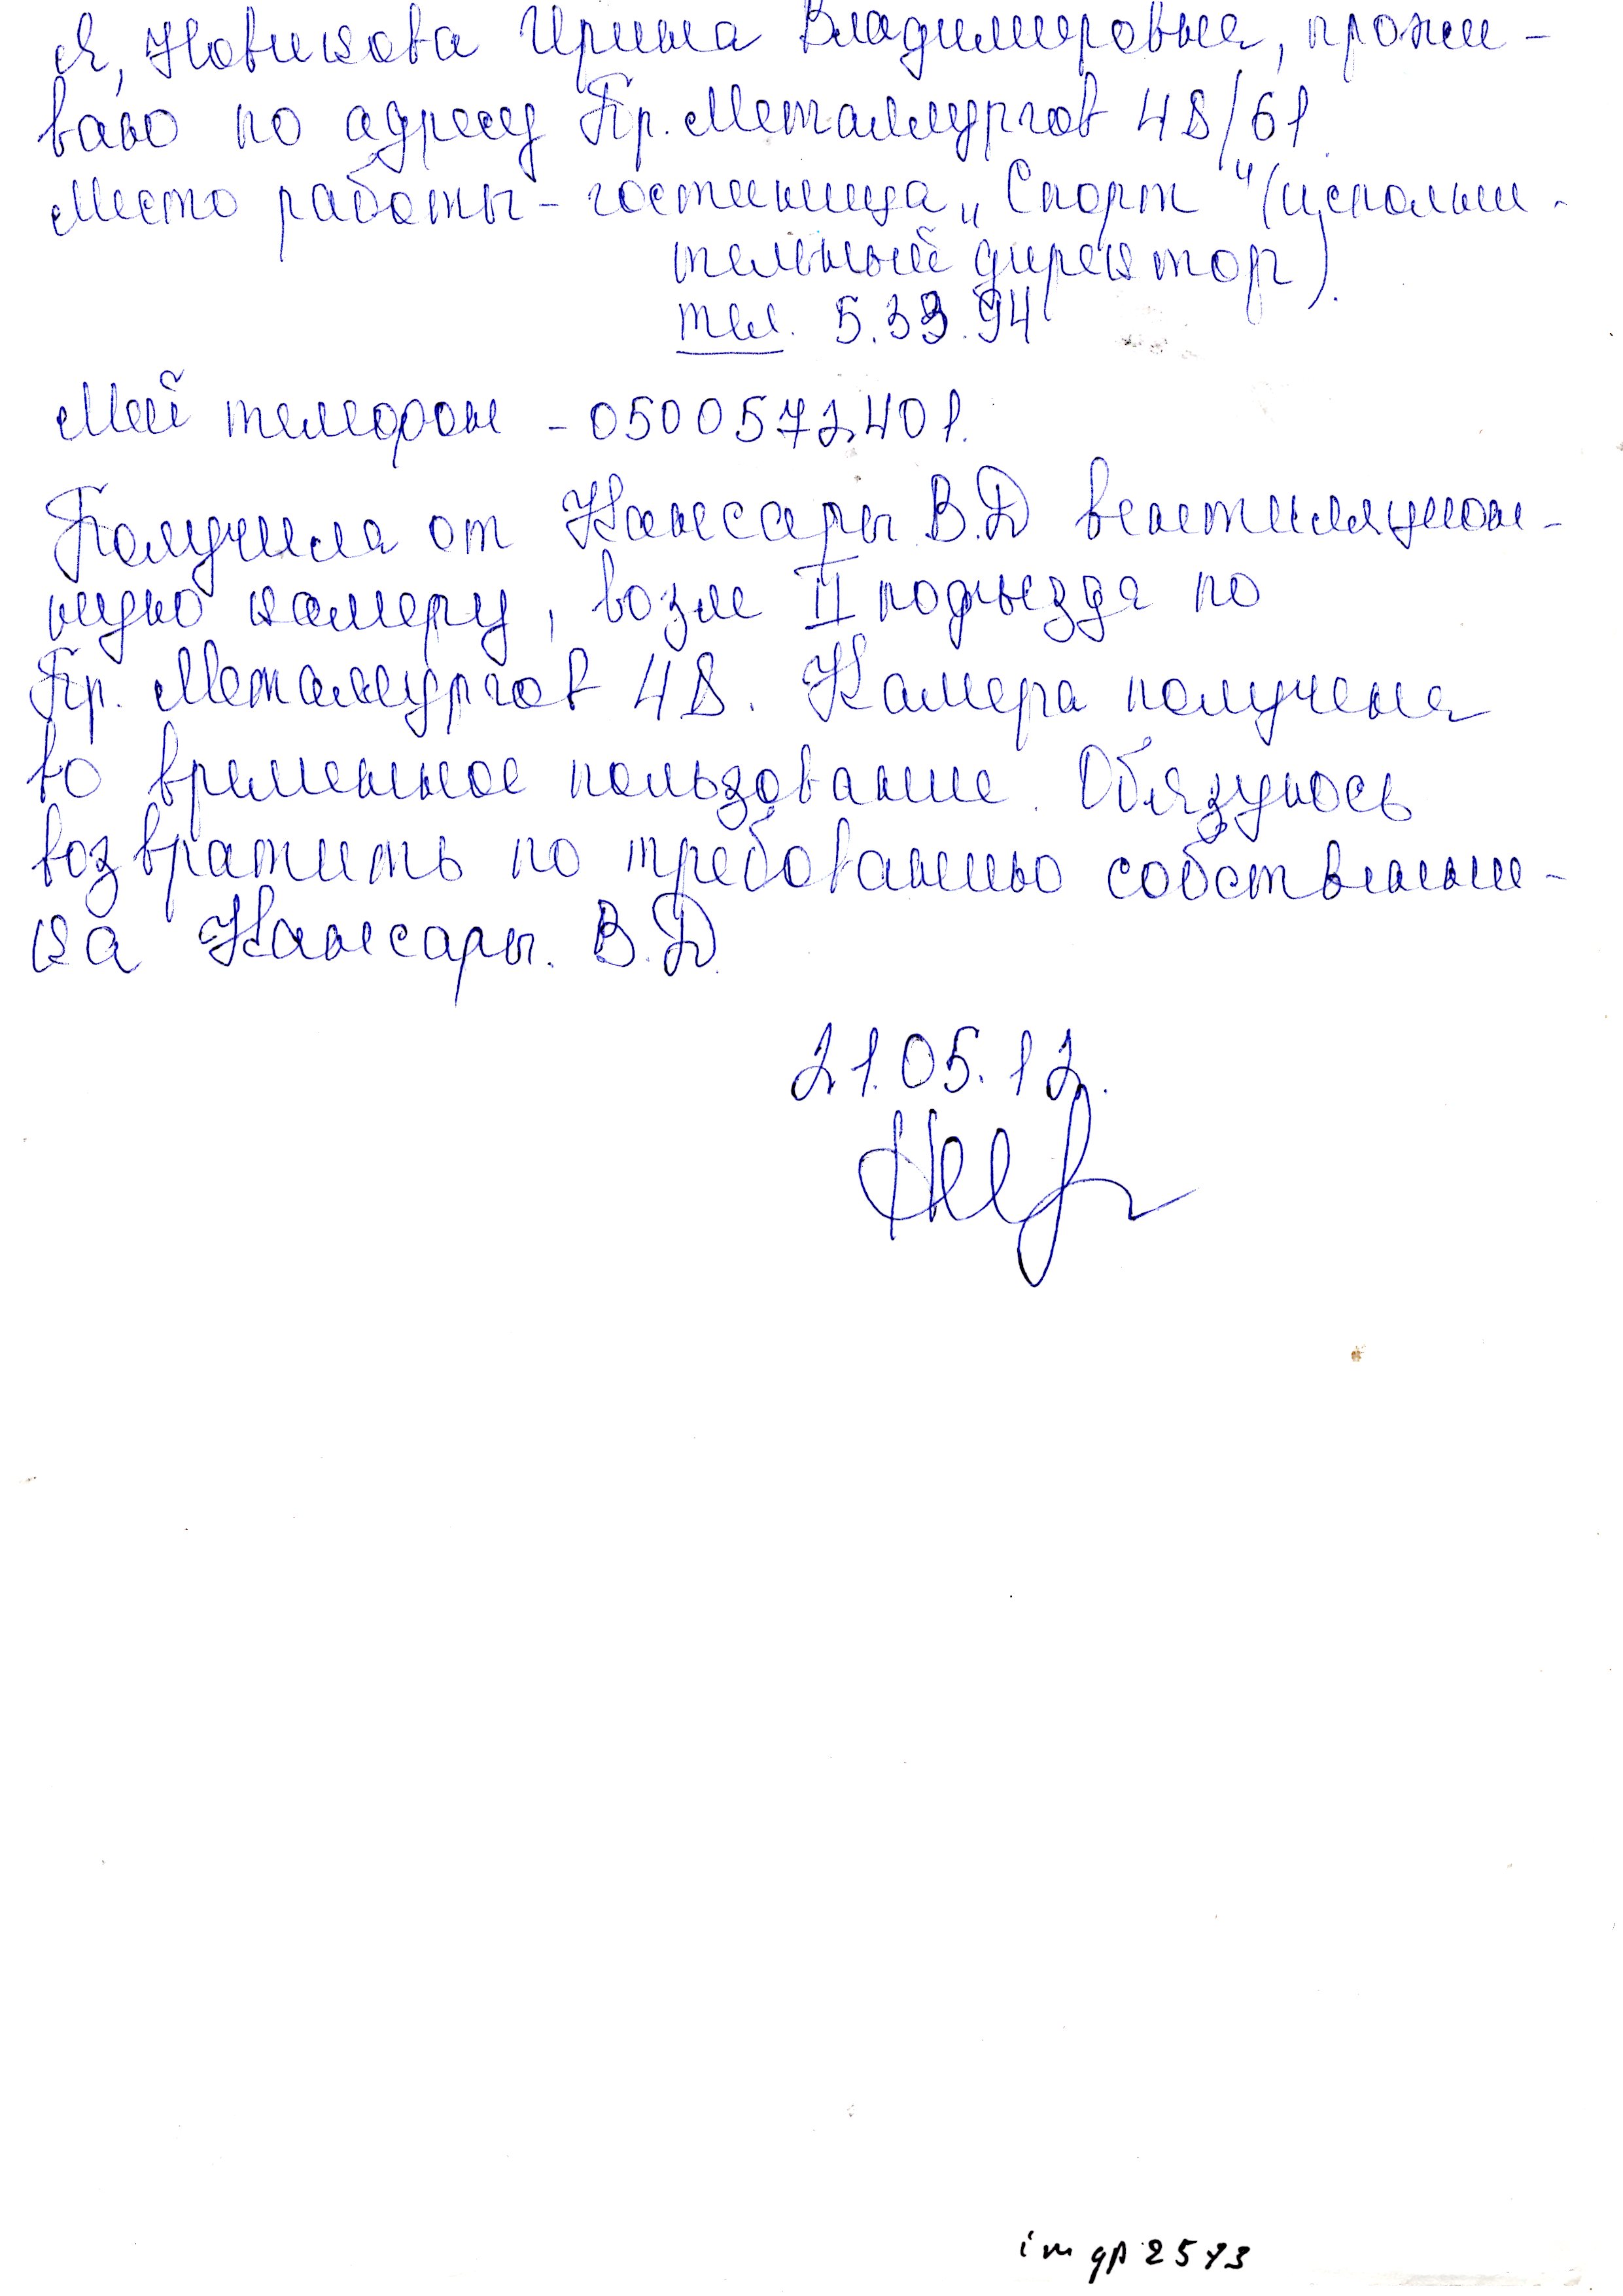 Я, Новикова Ирина Владимировна, прожи-
ваю по адресу Пр. Металлургов 48/61
Место работы - гостиница „Спорт" (исполни-
тельный директор).
тел. 5.33.94
Мой телефон - 0500572401.
Получила от Кансары В.Д вентиляцион-
ную камеру, возле II подъезда по
Пр. Металлургов 48. Камера получена
во временное пользование. Обязуюсь
возвратить по требованию собственни-
ка Кансары. В.Д.
21.05.12.
imgp2593